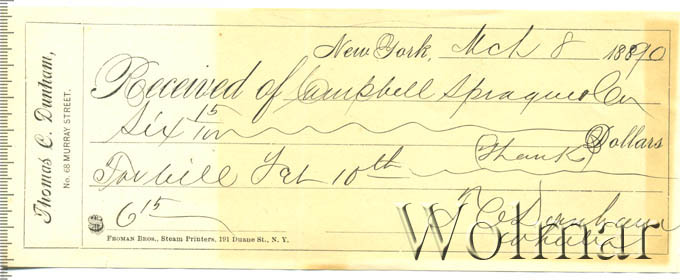 Thomas C. Dunham,
No. 68 MURRAY STREET.
New York, Mch 8 1890
Received of Campbell Sprague & Co
Six 15/100 Dollars
For bill Feb 10th Thanks
$ 6 15
T C Dunham
FROMAN BROS., Steam Printers, 191 Duane St., N. Y.
Wolmar